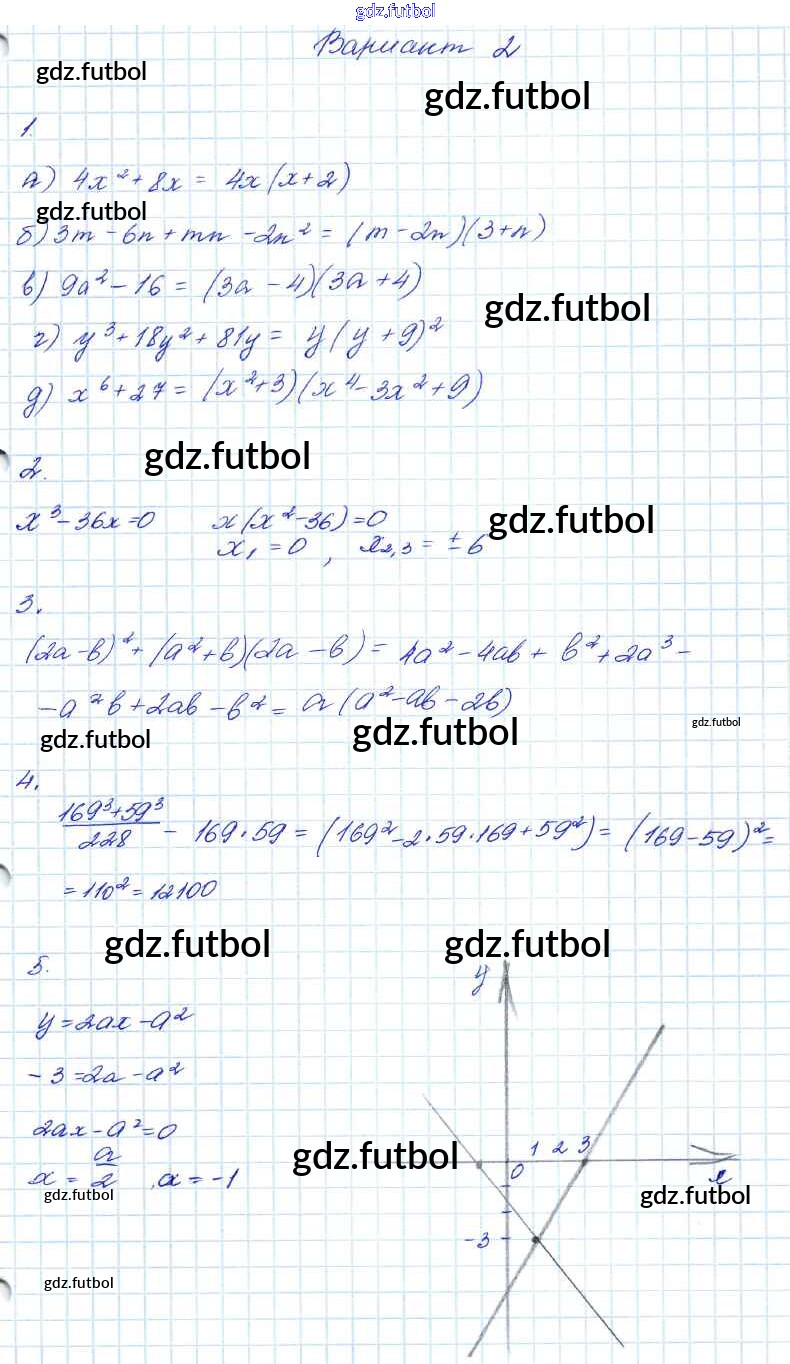 gdz.futbol
Вариант 2
gdz.futbol
gdz.futbol
1.
а) 4x² + 8x = 4x(x+2)
gdz.futbol
б) 3m - 6n + mn - 2n² = (m - 2n)(3+n)
в) 9a² - 16 = (3a - 4)(3a + 4)
gdz.futbol
г) y³ + 18y² + 81y = y(y + 9)²
д) x⁶ + 27 = (x² + 3)(x⁴ - 3x² + 9)
2.
gdz.futbol
x³ - 36x = 0 x(x² - 36) = 0
gdz.futbol
x₁ = 0 , x₂,₃ = ± 6
3.
(2a - b)² + (a² + b)(2a - b) = 4a² - 4ab + b² + 2a³ -
- a²b + 2ab - b² = a(a² - ab - 2b)
gdz.futbol
gdz.futbol
gdz.futbol
4.
169³ + 59³
228
- 169 · 59 = (169² - 2 · 59 · 169 + 59²) = (169 - 59)² =
= 110² = 12100
gdz.futbol
gdz.futbol
5.
y
y = 2ax - a²
- 3 = 2a - a²
2ax - a² = 0
x = a/2 , a = -1
gdz.futbol
1 2 3
0
x
gdz.futbol
gdz.futbol
-3
gdz.futbol